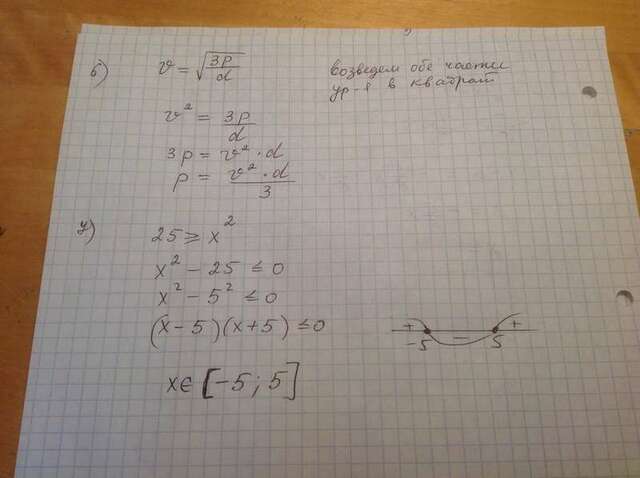 б) v = √(3p/d) Возведем обе части
ур-я в квадрат
v² = 3p/d
3p = v² · d
p = v² · d/3
y)
25 ≥ x²
x² - 25 ≤ 0
x² - 5² ≤ 0
(x-5)(x+5) ≤ 0
+ -5 - 5 +
x∈ [-5; 5]